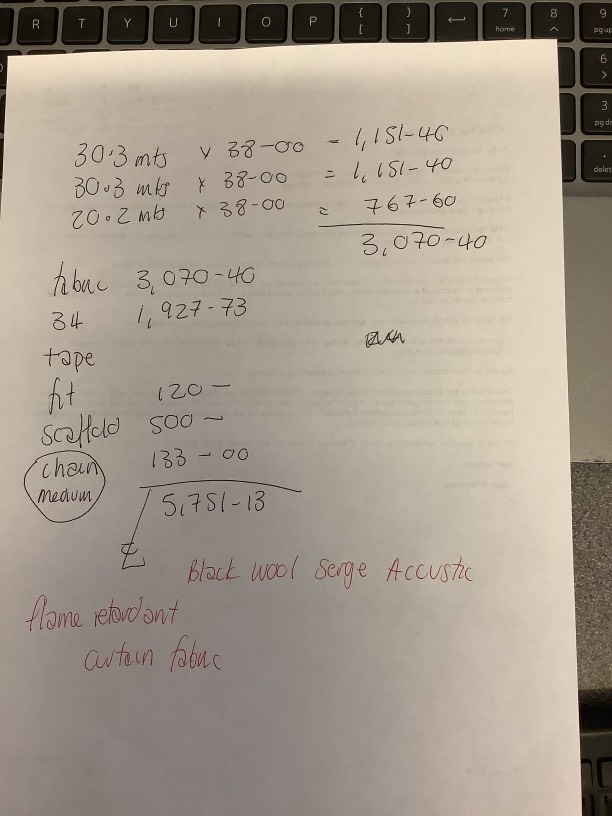 R T Y U I O P { [ } ] 7 home 8 9 pg up
6
3 pg dn
. delete
30.3 mts x 38-00 = 1,151-40
30.3 mts x 38-00 = 1,151-40
20.2 mts x 38-00 = 767-60
3,070-40
fabric 3,070-40
34 1,927-73
tape
fit 120-
scaffold 500-
chain medium 133-00
£ 5,751-13
Black wool Serge Accustic
flame retardant
curtain fabric